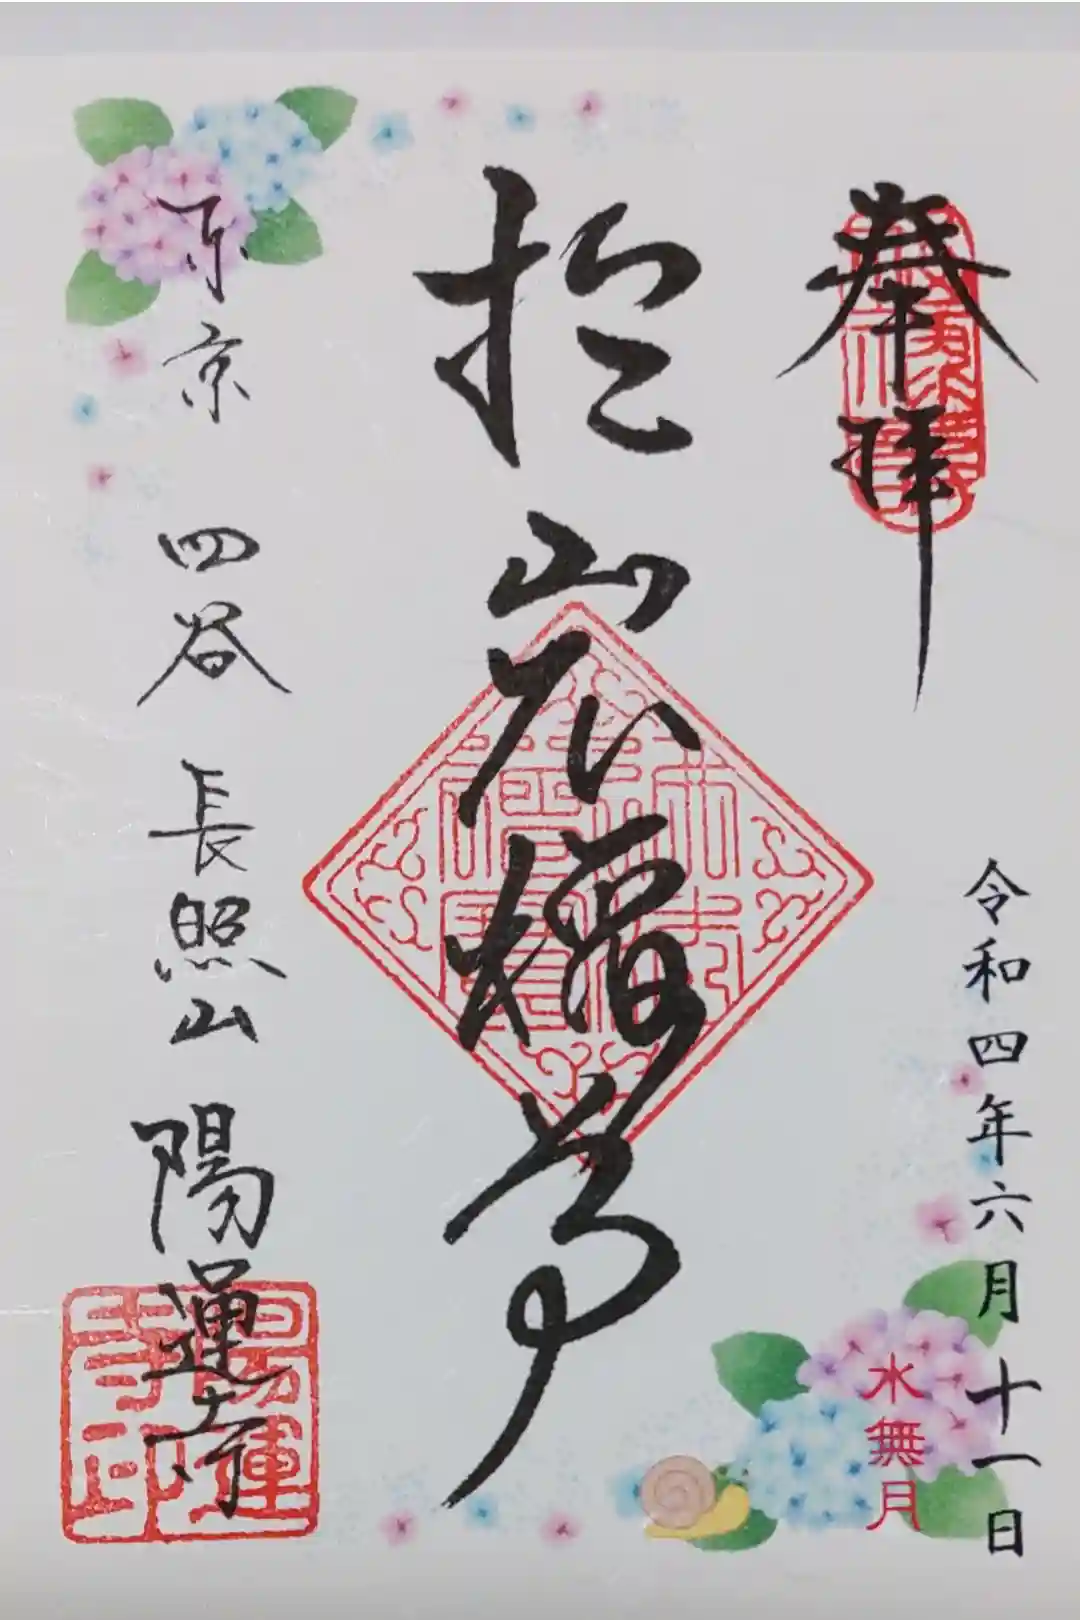 奉拝
令和四年六月十一日
水無月
於岩稲荷
東京 四谷 長照山 陽運寺
陽運寺印